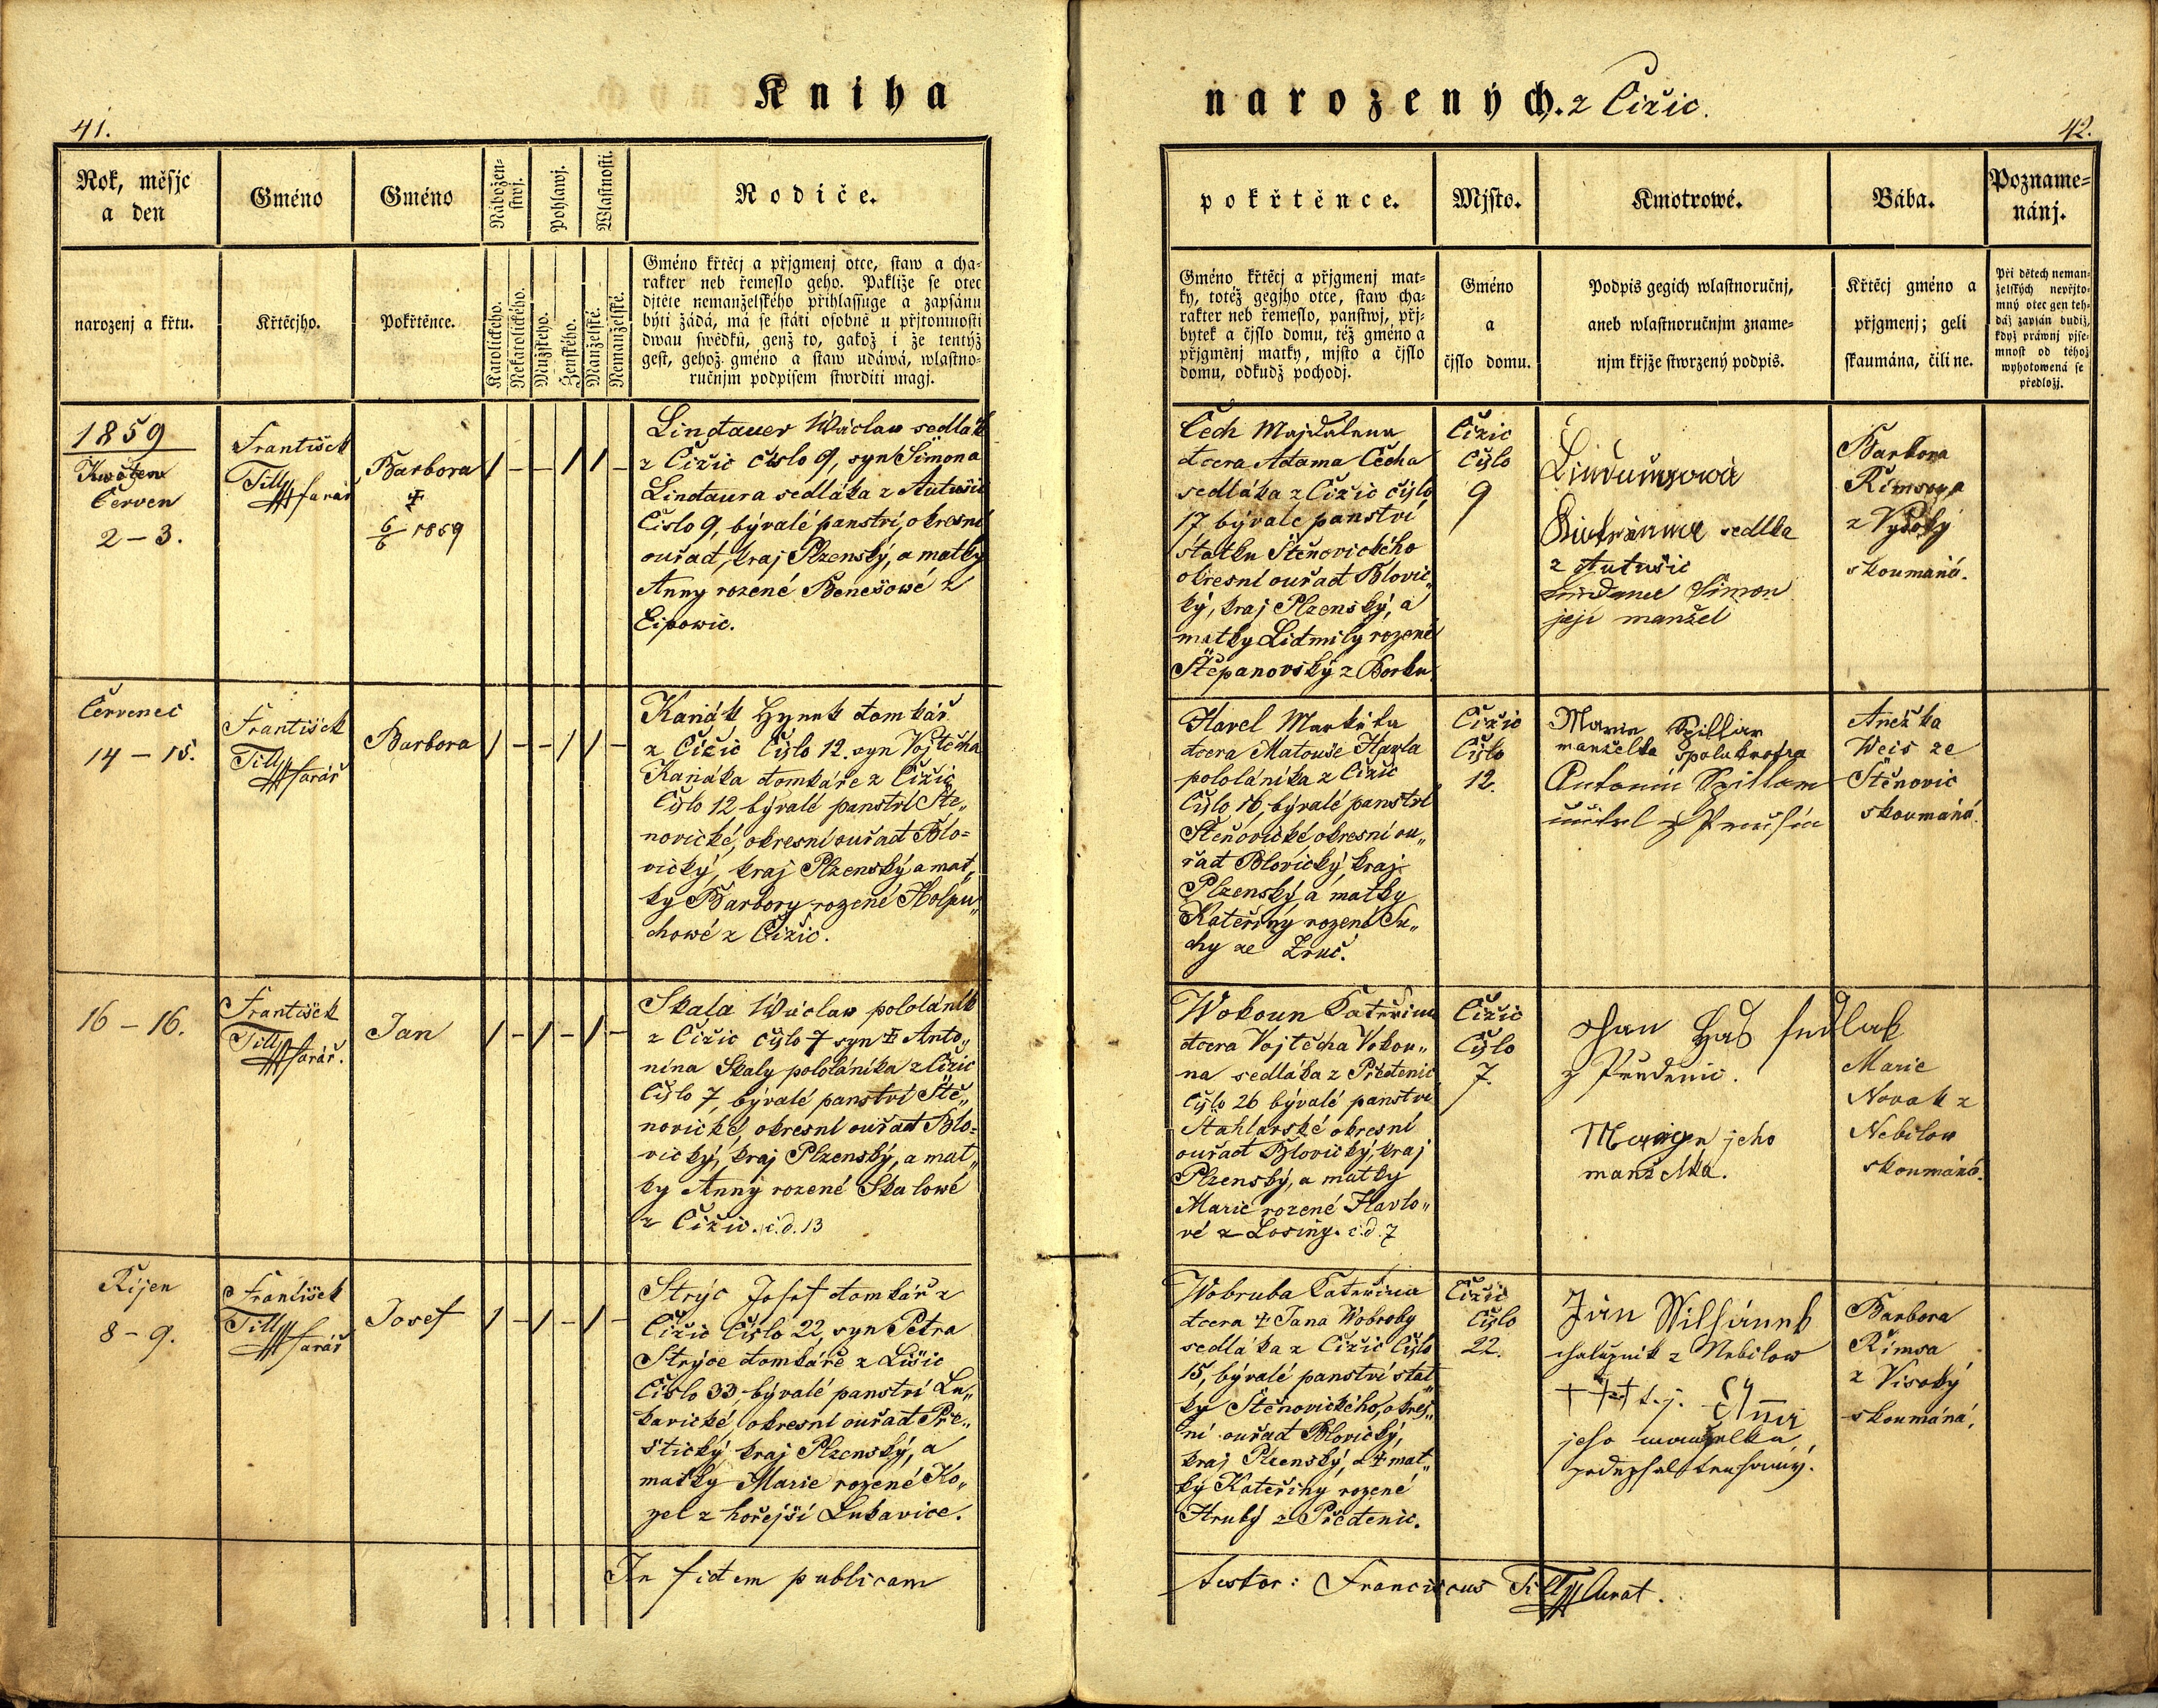 Kniha
narozených. z Čižic.
41.
42.
Rok, měsjc
a den
Gméno
Gméno
Nábožen-
stwj.
Pohlawj.
Wlastnosti.
Rodiče.
narozenj a křtu.
Křtěcjho.
Pokřtěnce.
Katolického.
Nekatolického.
Mužského.
Ženského.
Manželské.
Nemanželské.
Gméno křtěcj a přjgmenj otce, staw a cha-
rakter neb řemeslo geho. Pakliže se otec
djtěte nemanželského přihlassuge a zapsánu
býti žádá, má se státi osobně u přjtomnosti
dwau swědků, genž to, gakož i že tentýž
gest, gehož gméno a staw udáwá, wlastno-
ručnjm podpisem stwrditi magj.
pokřtěnce.
Mjsto.
Kmotrowé.
Bába.
Pozname-
nánj.
Gméno křtěcj a přjgmenj mat-
ky, totéž gegjho otce, staw cha-
rakter neb řemeslo, panstwj, přj-
bytek a čjslo domu, též gméno a
přjgměnj matky, mjsto a čjslo
domu, odkudž pochodj.
Gméno
a
čjslo domu.
Podpis gegich wlastnoručnj,
aneb wlastnoručnjm zname-
njm křjže stwrzený podpis.
Křtěcj gméno a
přjgmenj; geli
skaumána, čili ne.
Při dětech neman-
želských nepřjto-
mný otec gen teh-
dáž zapsán budiž,
když práwnj pjse-
mnost od téhož
wyhotowená se
předložj.
1859
Kwěten
Červen
2 – 3.
František
Till farář
Barbora
†
6/6 1859
Lindauer Wáclaw sedlák
z Čižic čislo 9, syn Šimona
Lindaura sedláka z Autušic
Čislo 9, bývalé panstvi, okresní
ouřad, kraj Plzenský, a matky
Anny rozené Benešowé z
Lipowic.
Čech Majdalena
dcera Adama Čecha
sedláka z Čižic čislo
17 bývalé panství
statku Štěnovického
okresní ouřad Blovic„
ký, kraj Plzenský, a
matky Lidmily rozené
Štěpanovský z Borku
Čižic
Čislo
9
sedlka
z Autušic
Šimon
její manžel
Barbora
Rimsova
z Vysoky
skoumaná.
Červenec
14 – 15.
František
Till farář
Barbora
Kaňák Hynek domkář
z Čižic Čislo 12. syn Vojtěcha
Kaňáka domkáře z Čižic
Čislo 12 bývalé panství Ště„
novické, okresní ouřad Blo-
vický, kraj Plzenský a mat„
ky Barbory rozené Holpu„
chowé z Čižic.
Havel Markéta
dcera Matouše Havla
pololáníka z Čižic
Čislo 16, bývalé panství
Štěnovické, okresní ou„
řad Blovický, kraj
Plzenský, a matky
Kateřiny rozené Su„
chy ze Zruč.
Čižic
Čislo
12.
Marie Spillar
manželka spolukmotra
Antonín Spillar
učitel z
Anežka
Weis ze
Štěnovic
skoumáná.
16 – 16.
František
Till farář.
Jan
Skala Wáclaw pololánik
z Čižic čislo 7 syn † Anto„
nína Skaly pololánika z Čižic
Čislo 7, bývalé panství Ště„
novické, okresní ouřad Blo-
vický, kraj Plzenský, a mat„
ky Anny rozené Skalowé
z Čižic. č.d. 13
Wokoun Kateřina
dcera Vojtěcha Vokou„
na sedláka z Předenic
Čislo 26 bývalé panství
Štáhlavské okresní
ouřad Blovický, kraj
Plzenský, a matky
Marie rozené Havlo„
vé z Losiny. č.d. 7
Čižic
Čislo
7.
Jhan Haš sedlak
z Předenic.
Maryn jeho
manželka.
Marie
Novak z
Nebilow
skoumáná.
Říjen
8 – 9.
František
Till farář
Josef
Strýc Josef domkář z
Čižic Čislo 22, syn Petra
Strýce domkáře z Lišic
Čislo 33, bývalé panství Lu„
kavické, okresní ouřad Pře„
štický, kraj Plzenský, a
matky Marie rozené Ko„
zel z hořejší Lukavice.
Wobruba Kateřina
dcera † Jana Wobruby
sedláka z Čižic Čislo
15, bývalé panství stat
ky Štěnovického, okres„
ní ouřad Blovický,
kraj Plzenský, a † mat„
ky Kateřiny rozené
Hruby z Předenic.
Čižic
Čislo
22.
Jan
chalupník z Nebilow
† † † t. j. Anna
jeho manželka
Barbora
Rimsa
z Visoký
skoumáná.
In fidem publicam
testor: Franciscus Till Curat.